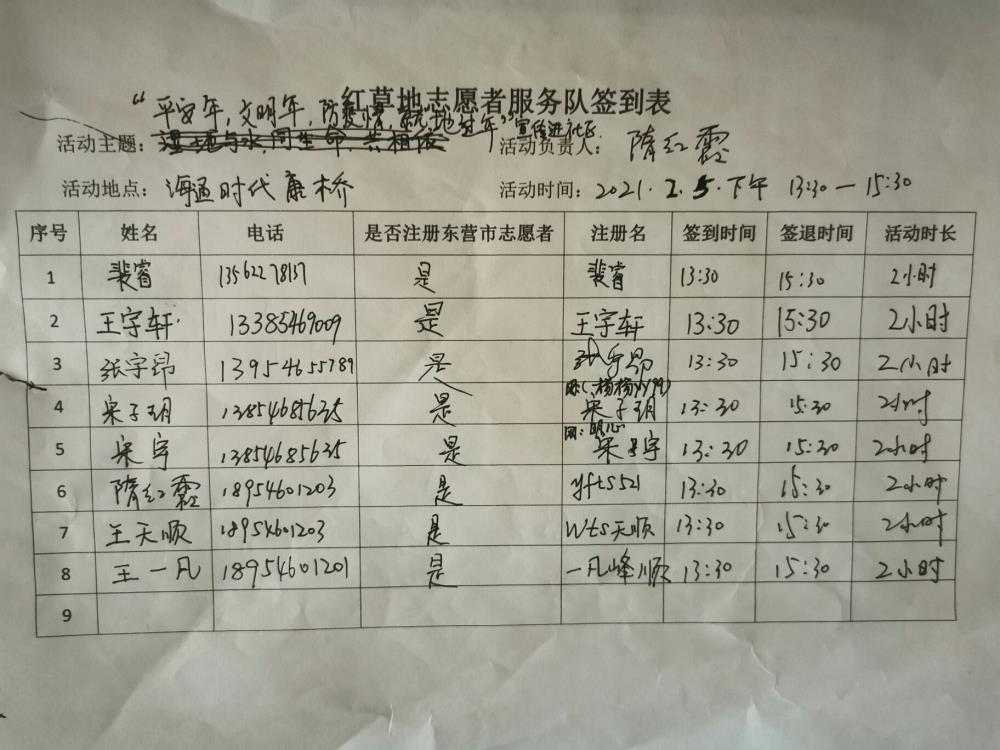 红草地志愿者服务队签到表
"平安年,文明年,防疫情,就地过年"宣传进社区
活动主题: 湿地与水,同生命,共相依 活动负责人: 隋红霞
活动地点: 海通时代康桥 活动时间: 2021.2.5.下午 13:30—15:30
序号 姓名 电话 是否注册东营市志愿者 注册名 签到时间 签退时间 活动时长
1 裴睿 13562278137 是 裴睿 13:30 15:30 2小时
2 王宇轩 13385469009 是 王宇轩 13:30 15:30 2小时
3 张宇昂 13954655789 是 张宇昂 13:30 15:30 2小时
4 宋子玥 13854685635 是 宋子玥 13:30 15:30 2小时
5 宋宇 13854685635 是 宋宇 13:30 15:30 2小时
6 隋红霞 18954601203 是 yfts521 13:30 15:30 2小时
7 王天顺 18954601203 是 Wts天顺 13:30 15:30 2小时
8 王一凡 18954601201 是 一凡峰顺 13:30 15:30 2小时
9